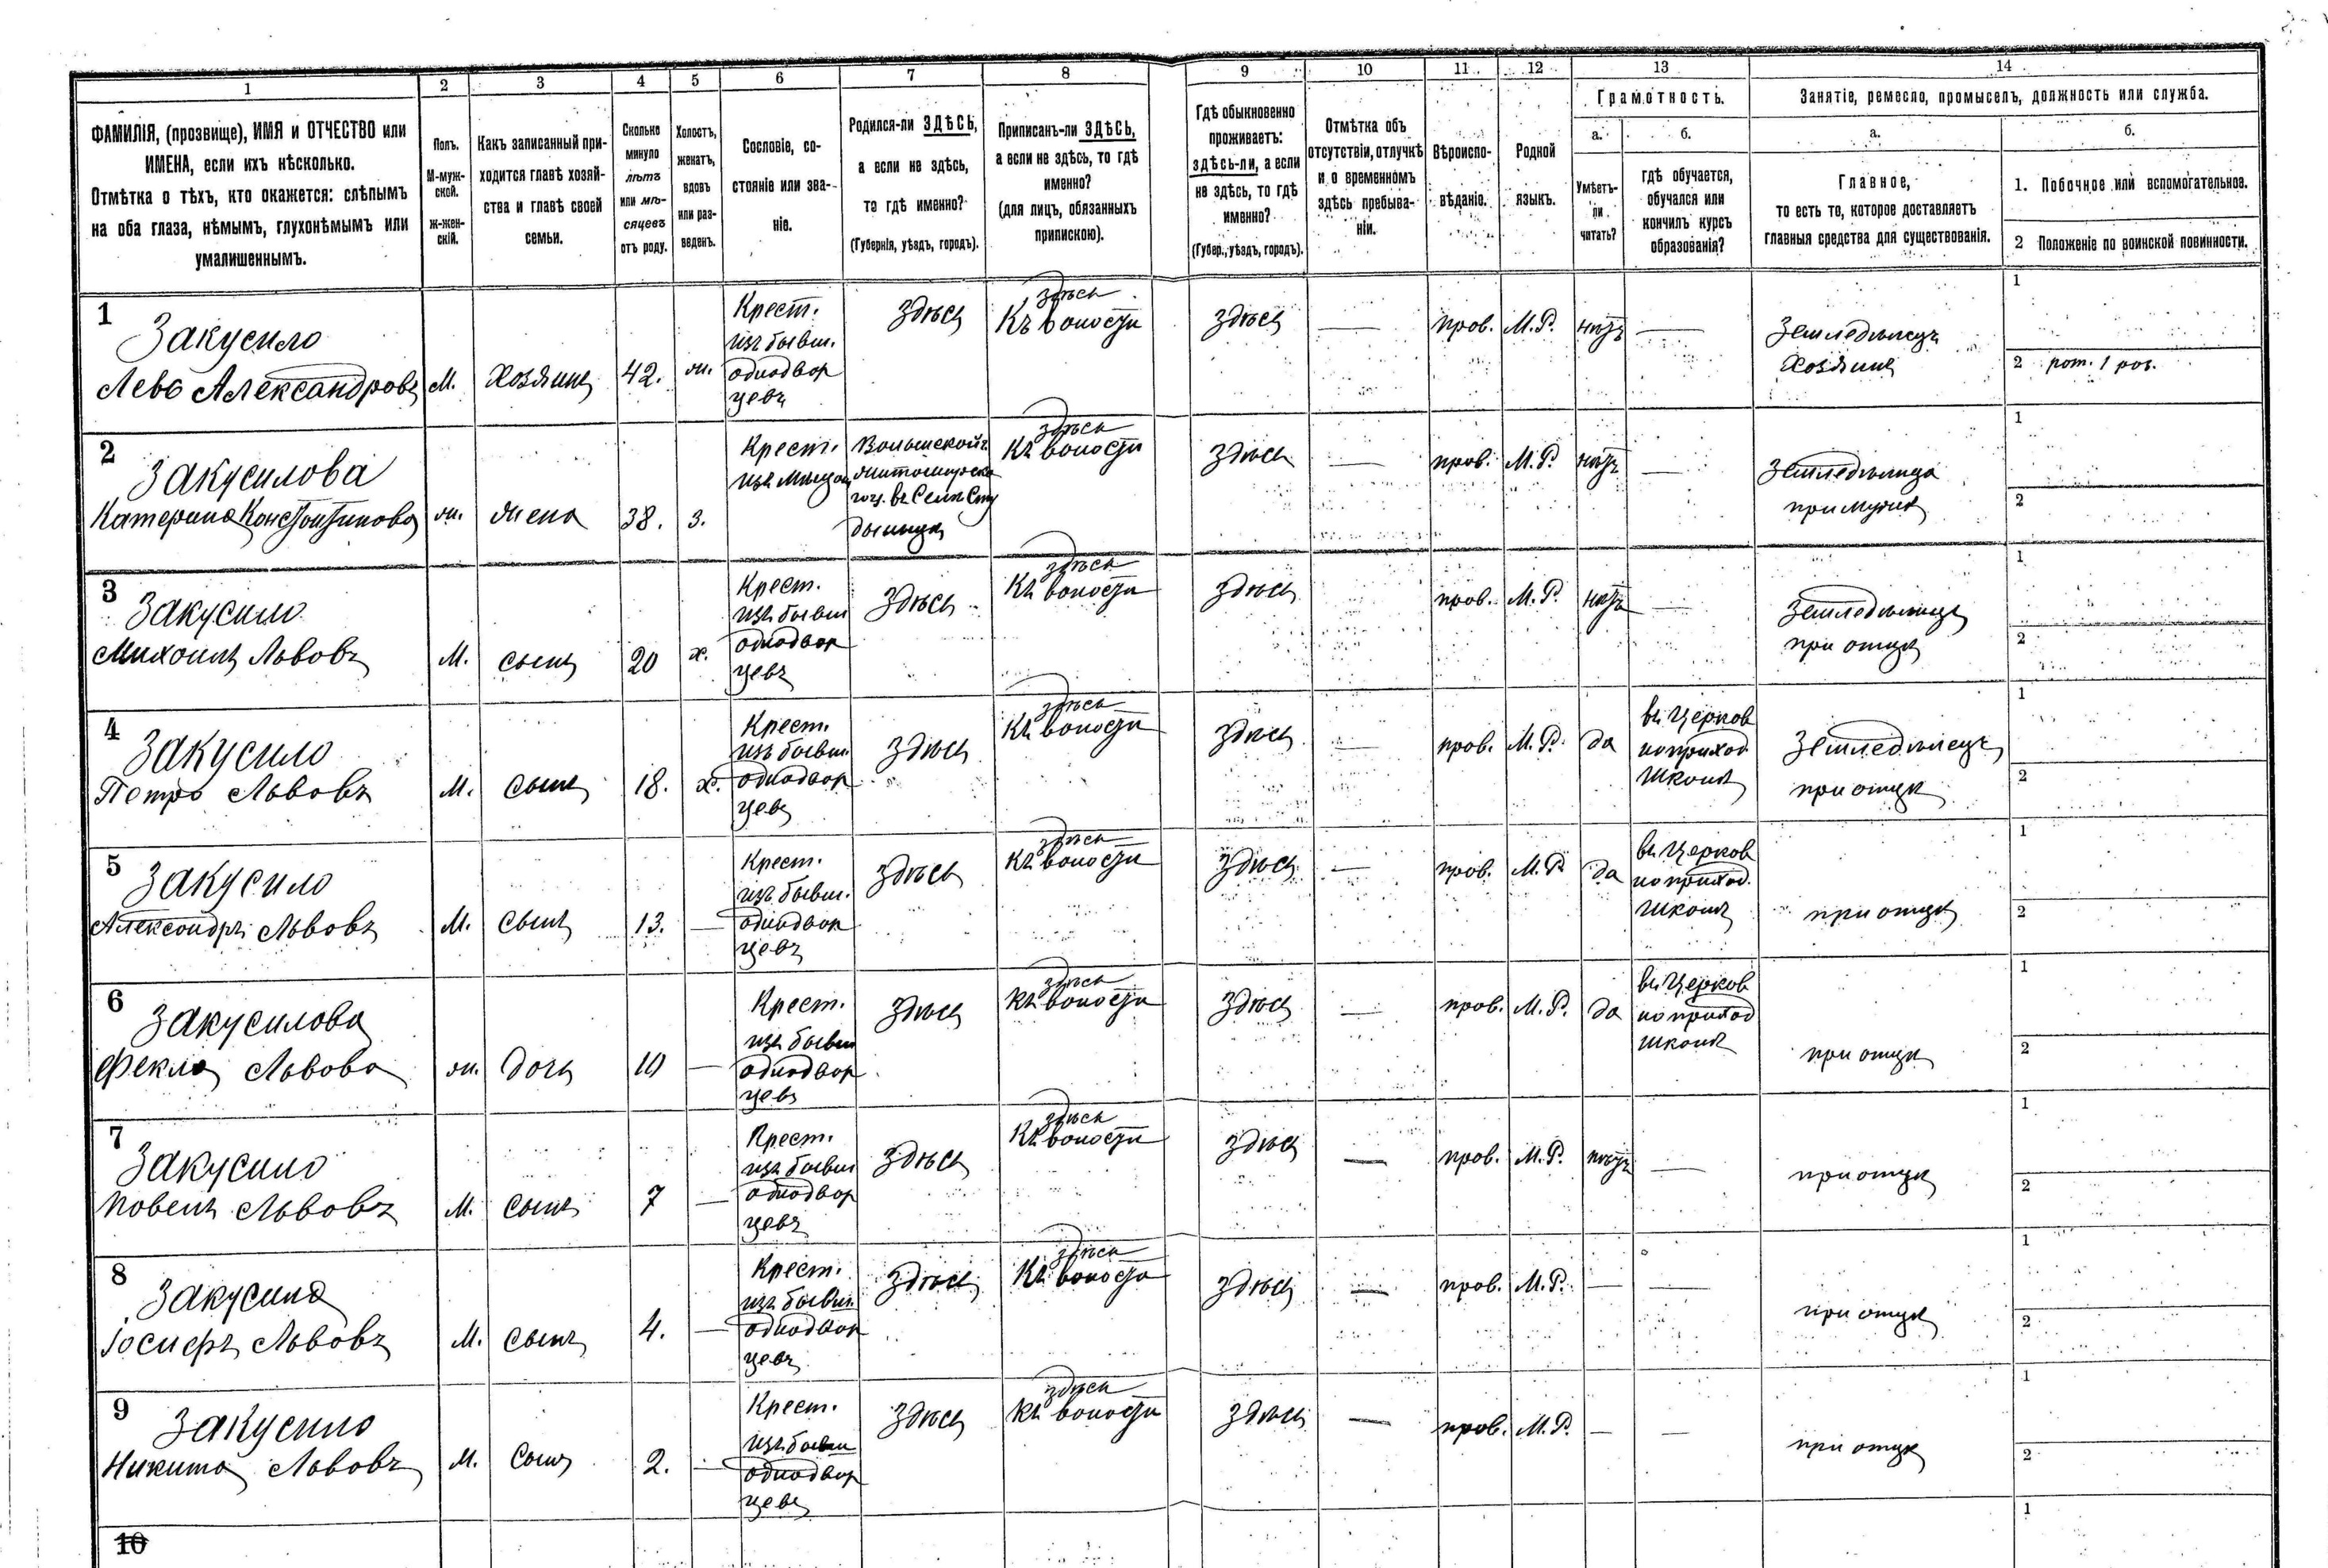 1 2 3 4 5 6 7 8 9 10 11 12 13 14
ФАМИЛІЯ, (прозвище), ИМЯ и ОТЧЕСТВО или
ИМЕНА, если ихъ нѣсколько.
Отмѣтка о тѣхъ, кто окажется: слѣпымъ
на оба глаза, нѣмымъ, глухонѣмымъ или
умалишеннымъ.
Полъ.
М-муж-
ской.
ж-жен-
скій.
Какъ записанный при-
ходится главѣ хозяй-
ства и главѣ своей
семьи.
Сколько
минуло
лѣтъ
или мѣ-
сяцевъ
отъ роду.
Холостъ,
женатъ,
вдовъ
или раз-
веденъ.
Сословіе, со-
стояніе или зва-
ніе.
Родился-ли ЗДѢСЬ,
а если не здѣсь,
то гдѣ именно?
(Губернія, уѣздъ, городъ).
Приписанъ-ли ЗДѢСЬ,
а если не здѣсь, то гдѣ
именно?
(для лицъ, обязанныхъ
припискою).
Гдѣ обыкновенно
проживаетъ:
здѣсь-ли, а если
не здѣсь, то гдѣ
именно?
(Губер., уѣздъ, городъ).
Отмѣтка объ
отсутствіи, отлучкѣ
и о временномъ
здѣсь пребыва-
ніи.
Вѣроиспо-
вѣданіе.
Родной
языкъ.
Грамотность.
а.
Умѣетъ-
ли
читать?
б.
гдѣ обучается,
обучался или
кончилъ курсъ
образованія?
Занятіе, ремесло, промыселъ, должность или служба.
а.
Главное,
то есть то, которое доставляетъ
главныя средства для существованія.
б.
1. Побочное или вспомогательное.
2 Положеніе по воинской повинности.
1
Закусило
Левъ Александровъ
М.
Хозяинъ
42.
ж.
Крест.
изъ бывш.
однодвор
цевъ
здѣсь
здѣсь
Къ волости
здѣсь
—
прав.
М.Р.
нѣтъ
—
Земледѣлецъ
Хозяинъ
1
2
2
Закусилова
Катерина Константинова
ж.
жена
38.
з.
Крест.
изъ мѣщан
Волынской
Житомирска
го у. въ Селѣ
здѣсь
Къ волости
здѣсь
—
прав.
М.Р.
нѣтъ
—
Земледѣлица
при мужѣ
1
2
3
Закусило
Михаилъ Львовъ
М.
сынъ
20
х.
Крест.
изъ бывш
однодвор
цевъ
здѣсь
здѣсь
Къ волости
здѣсь
прав.
М.Р.
нѣтъ
—
Земледѣлецъ
при отцѣ
1
2
4
Закусило
Петро Львовъ
М.
сынъ
18.
х.
Крест.
изъ бывш.
однодвор
цевъ
здѣсь
здѣсь
Къ волости
здѣсь
—
прав.
М.Р.
да
въ Церков
но приход
школѣ
Земледѣлецъ
при отцѣ
1
2
5
Закусило
Александръ Львовъ
М.
сынъ
13.
—
Крест.
изъ бывш.
однодвор
цевъ
здѣсь
здѣсь
Къ волости
здѣсь
—
прав.
М.Р.
да
въ Церков
но приход.
школѣ
при отцѣ
1
2
6
Закусилова
Фекла Львова
ж.
дочь
10
—
Крест.
изъ бывш
однодвор
цевъ
здѣсь
здѣсь
Къ волости
здѣсь
—
прав.
М.Р.
да
въ Церков
но приход
школѣ
при отцѣ
1
2
7
Закусило
Павелъ Львовъ
М.
сынъ
7
—
Крест.
изъ бывш
однодвор
цевъ
здѣсь
здѣсь
Къ волости
здѣсь
—
прав.
М.Р.
нѣтъ
—
при отцѣ
1
2
8
Закусило
Іосифъ Львовъ
М.
сынъ
4.
—
Крест.
изъ бывш.
однодвор
цевъ
здѣсь
здѣсь
Къ волости
здѣсь
—
прав.
М.Р.
—
—
при отцѣ
1
2
9
Закусило
Никита Львовъ
М.
сынъ
2.
—
Крест.
изъ бывш
однодвор
цевъ
здѣсь
здѣсь
Къ волости
здѣсь
—
прав.
М.Р.
—
—
при отцѣ
1
2
10
1